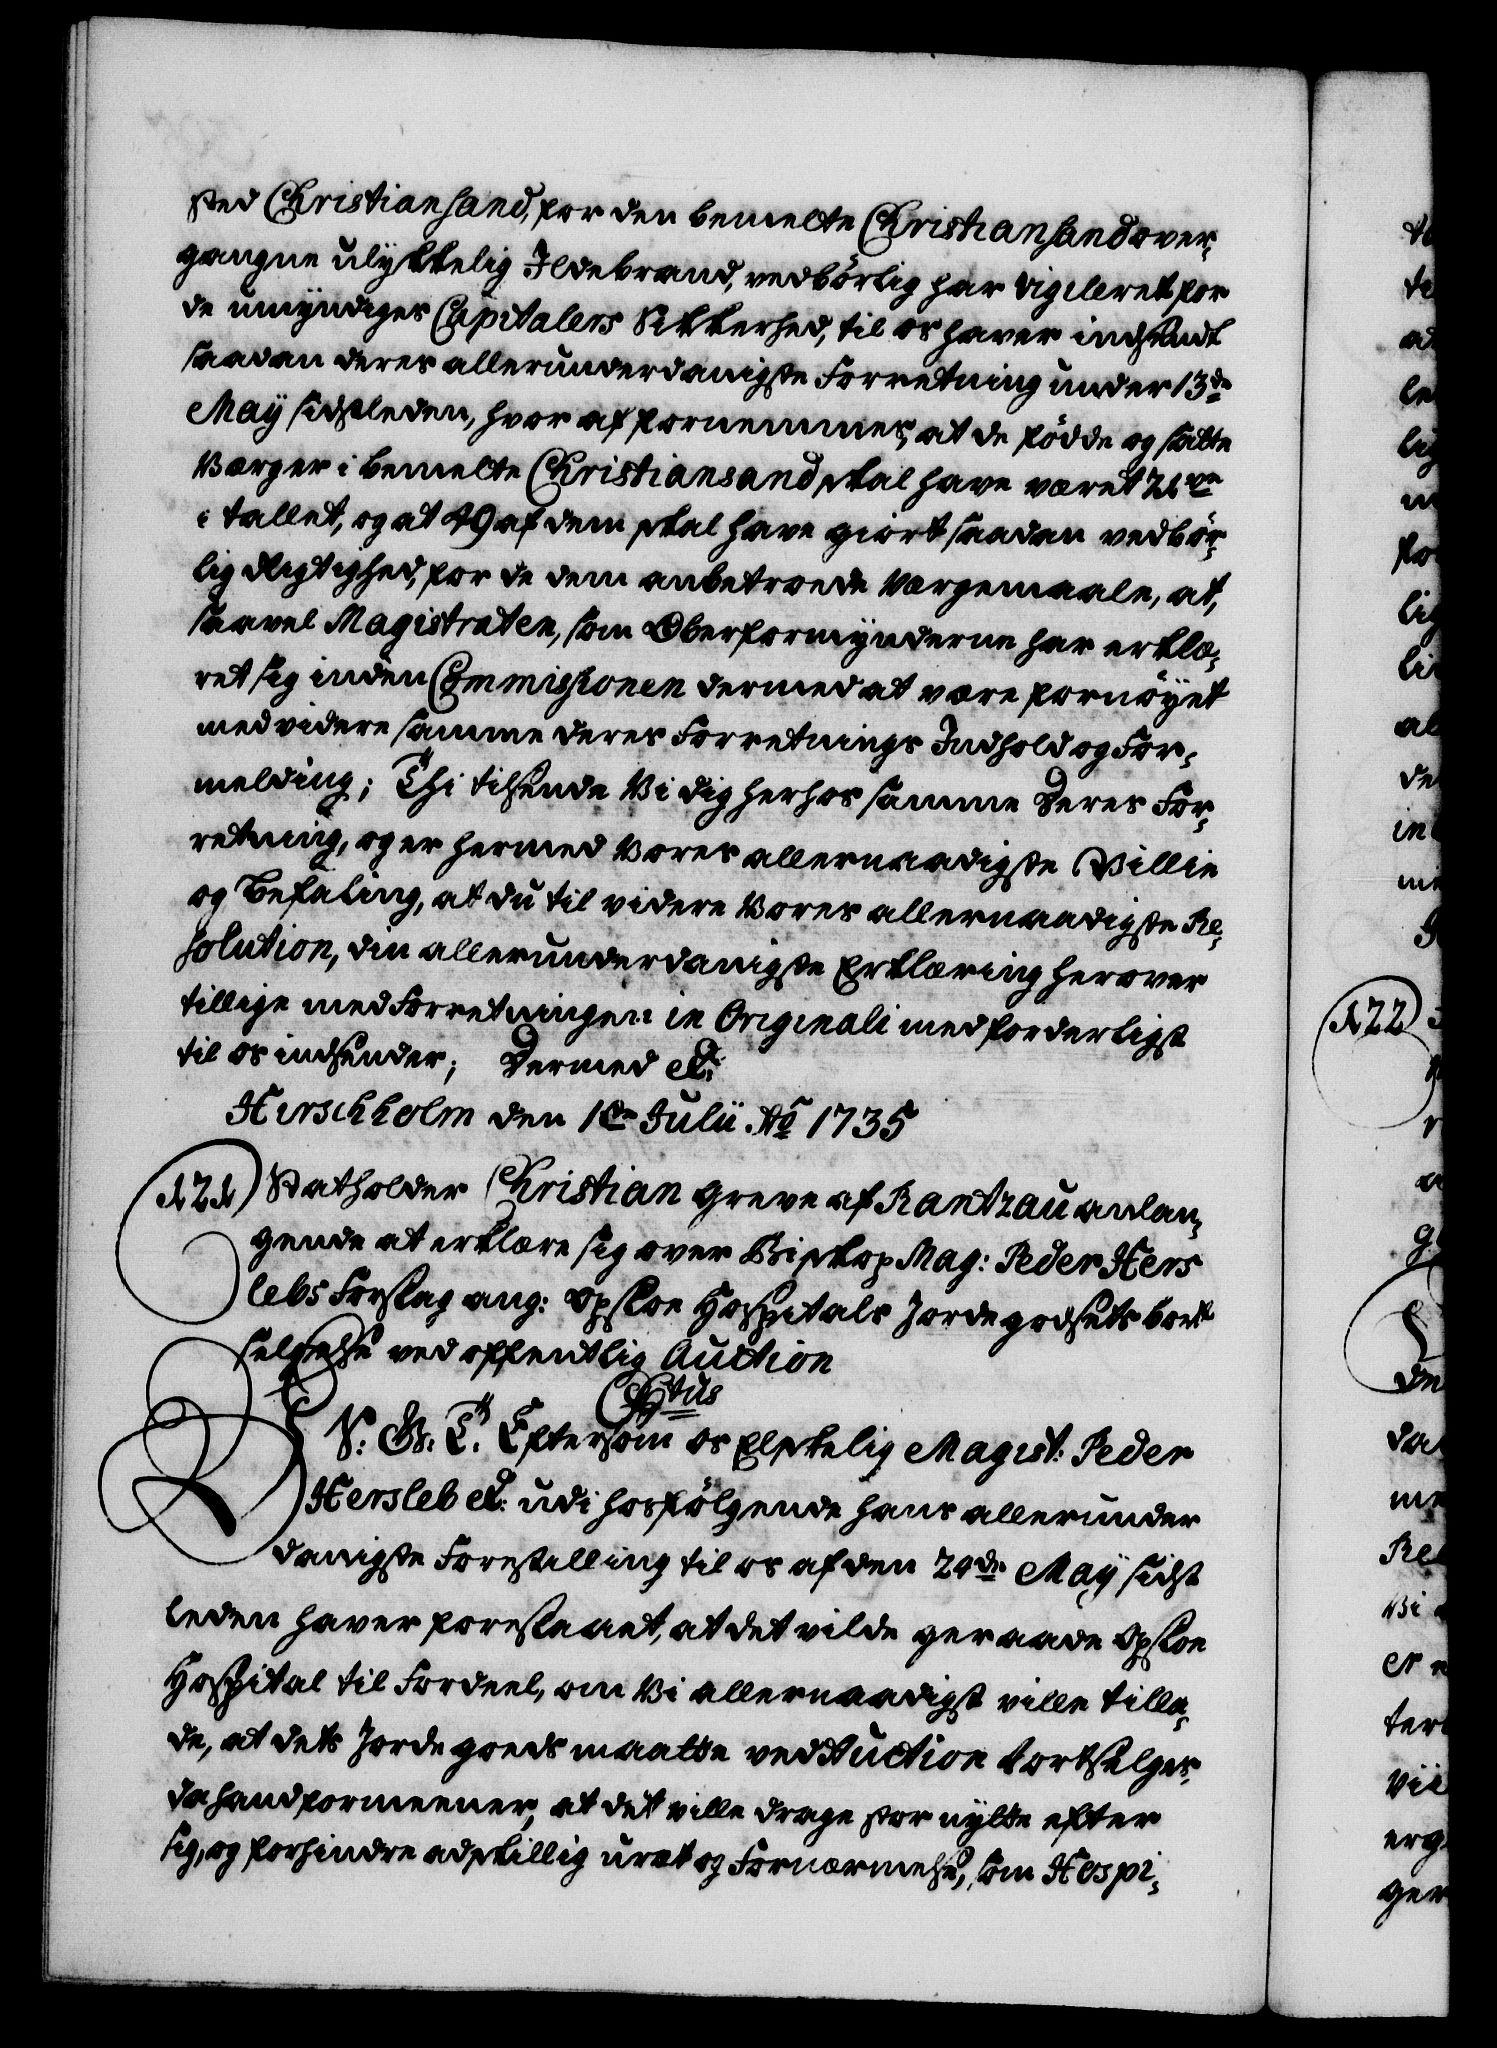 sted Christiansand, for den bemelte Christiansand over-
gangne ulykkelig Ildebrand, vedbörlig har vigileret for
de umyndiges Capitalers Sikkerhed, til os haver indsendt
saadan deres allerunderdanigste Forretning under 13de
Maÿ sidstleden, hvor af fornemmes, at de födde og satte
Værger i bemelte Christiansand skal have været
i tallet, og at 49 af dem skal have giort saadan vedbör-
lig Rigtighed, for de dem anbetroede Værgemaale, at,
saavel Magistraten, som Oberformynderne har erklæ-
ret sig inden Commissionen dermed at være fornöyet
med videre samme deres Forretnings Indhold og For-
melding; Thi tilsende Vi dig herhos samme Deres For-
retning, og er hermed Vores allernaadigste Villie
og Befaling, at du til videre Vores allernaadigste Re-
solution, din allerunderdanigste Erklæring herover
tillige med Forretningen in Originali med forderligst
til os indsender; Dermed etc:
Hirschholm den 1te Julii Ao 1735
121 Statholder Christian Greve af Rantzau anlan-
gende at erklære sig over Biskop Mag: Peder Hers
lebs Forslag ang: Opsloe Hospitals Jordegodsets bort
selgelse ved offentlig Auction
Chtus
V: G: T: Eftersom os Elskelig Magist: Peder
Hersleb etc: udi hosfölgende hans allerunder
danigste Forestilling til os af den 24de Maÿ sidst
leden haver foreslaaet, at det vilde geraade Opsloe
Hospital til Fordeel, om Vi allernaadigst ville tilla-
de, at dets Jordegoeds maatte ved Auction bortselges,
da hand formeener, at det ville drage stor nytte efter
sig, og forhindre adskillig uræt og Fornærmelse, som Hospi-
122